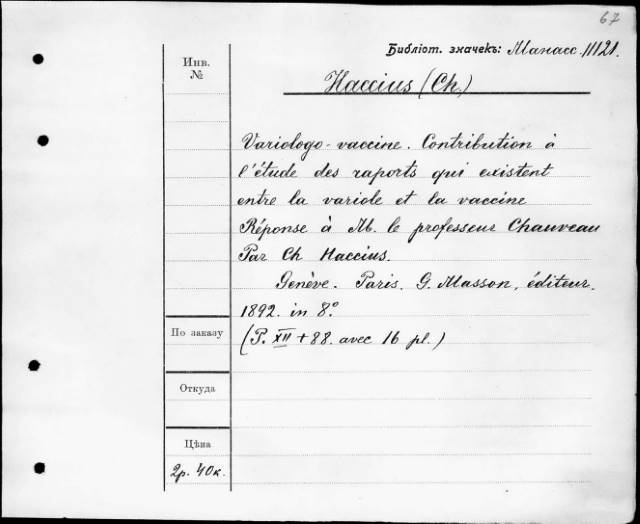 67
Библіот. значекъ: Манасс. 11121.
Инв.
№
Haccius (Ch.)
Variologo-vaccine. Contribution à
l'étude des raports qui existent
entre la variole et la vaccine
Réponse à M. le professeur Chauveau
Par Ch Haccius.
Genève. Paris. G. Masson, éditeur.
1892. in 8.º
(P. XII + 88. avec 16 pl.)
По заказу
Откуда
Цѣна
2р. 40к.